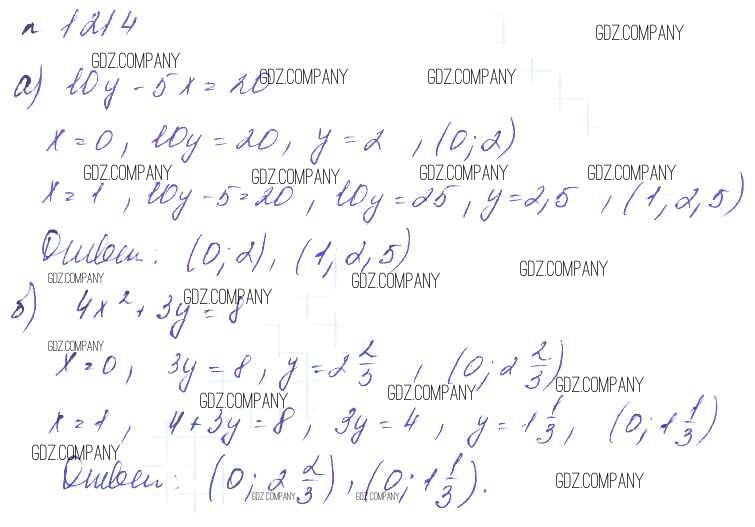 п 1214
GDZ.COMPANY GDZ.COMPANY
а) 10y - 5x = 20
GDZ.COMPANY GDZ.COMPANY
x = 0, 10y = 20, y = 2, (0; 2)
GDZ.COMPANY GDZ.COMPANY GDZ.COMPANY GDZ.COMPANY
x = 1, 10y - 5 = 20, 10y = 25, y = 2,5, (1, 2,5)
Ответ: (0; 2), (1, 2,5)
GDZ.COMPANY GDZ.COMPANY GDZ.COMPANY
GDZ.COMPANY
б) 4x² + 3y = 8
GDZ.COMPANY
x = 0, 3y = 8, y = 2 2/3, (0; 2 2/3)
GDZ.COMPANY GDZ.COMPANY GDZ.COMPANY
x = 1, 4 + 3y = 8, 3y = 4, y = 1 1/3, (0; 1 1/3)
GDZ.COMPANY
Ответ: (0; 2 2/3), (0; 1 1/3).
GDZ.COMPANY GDZ.COMPANY GDZ.COMPANY